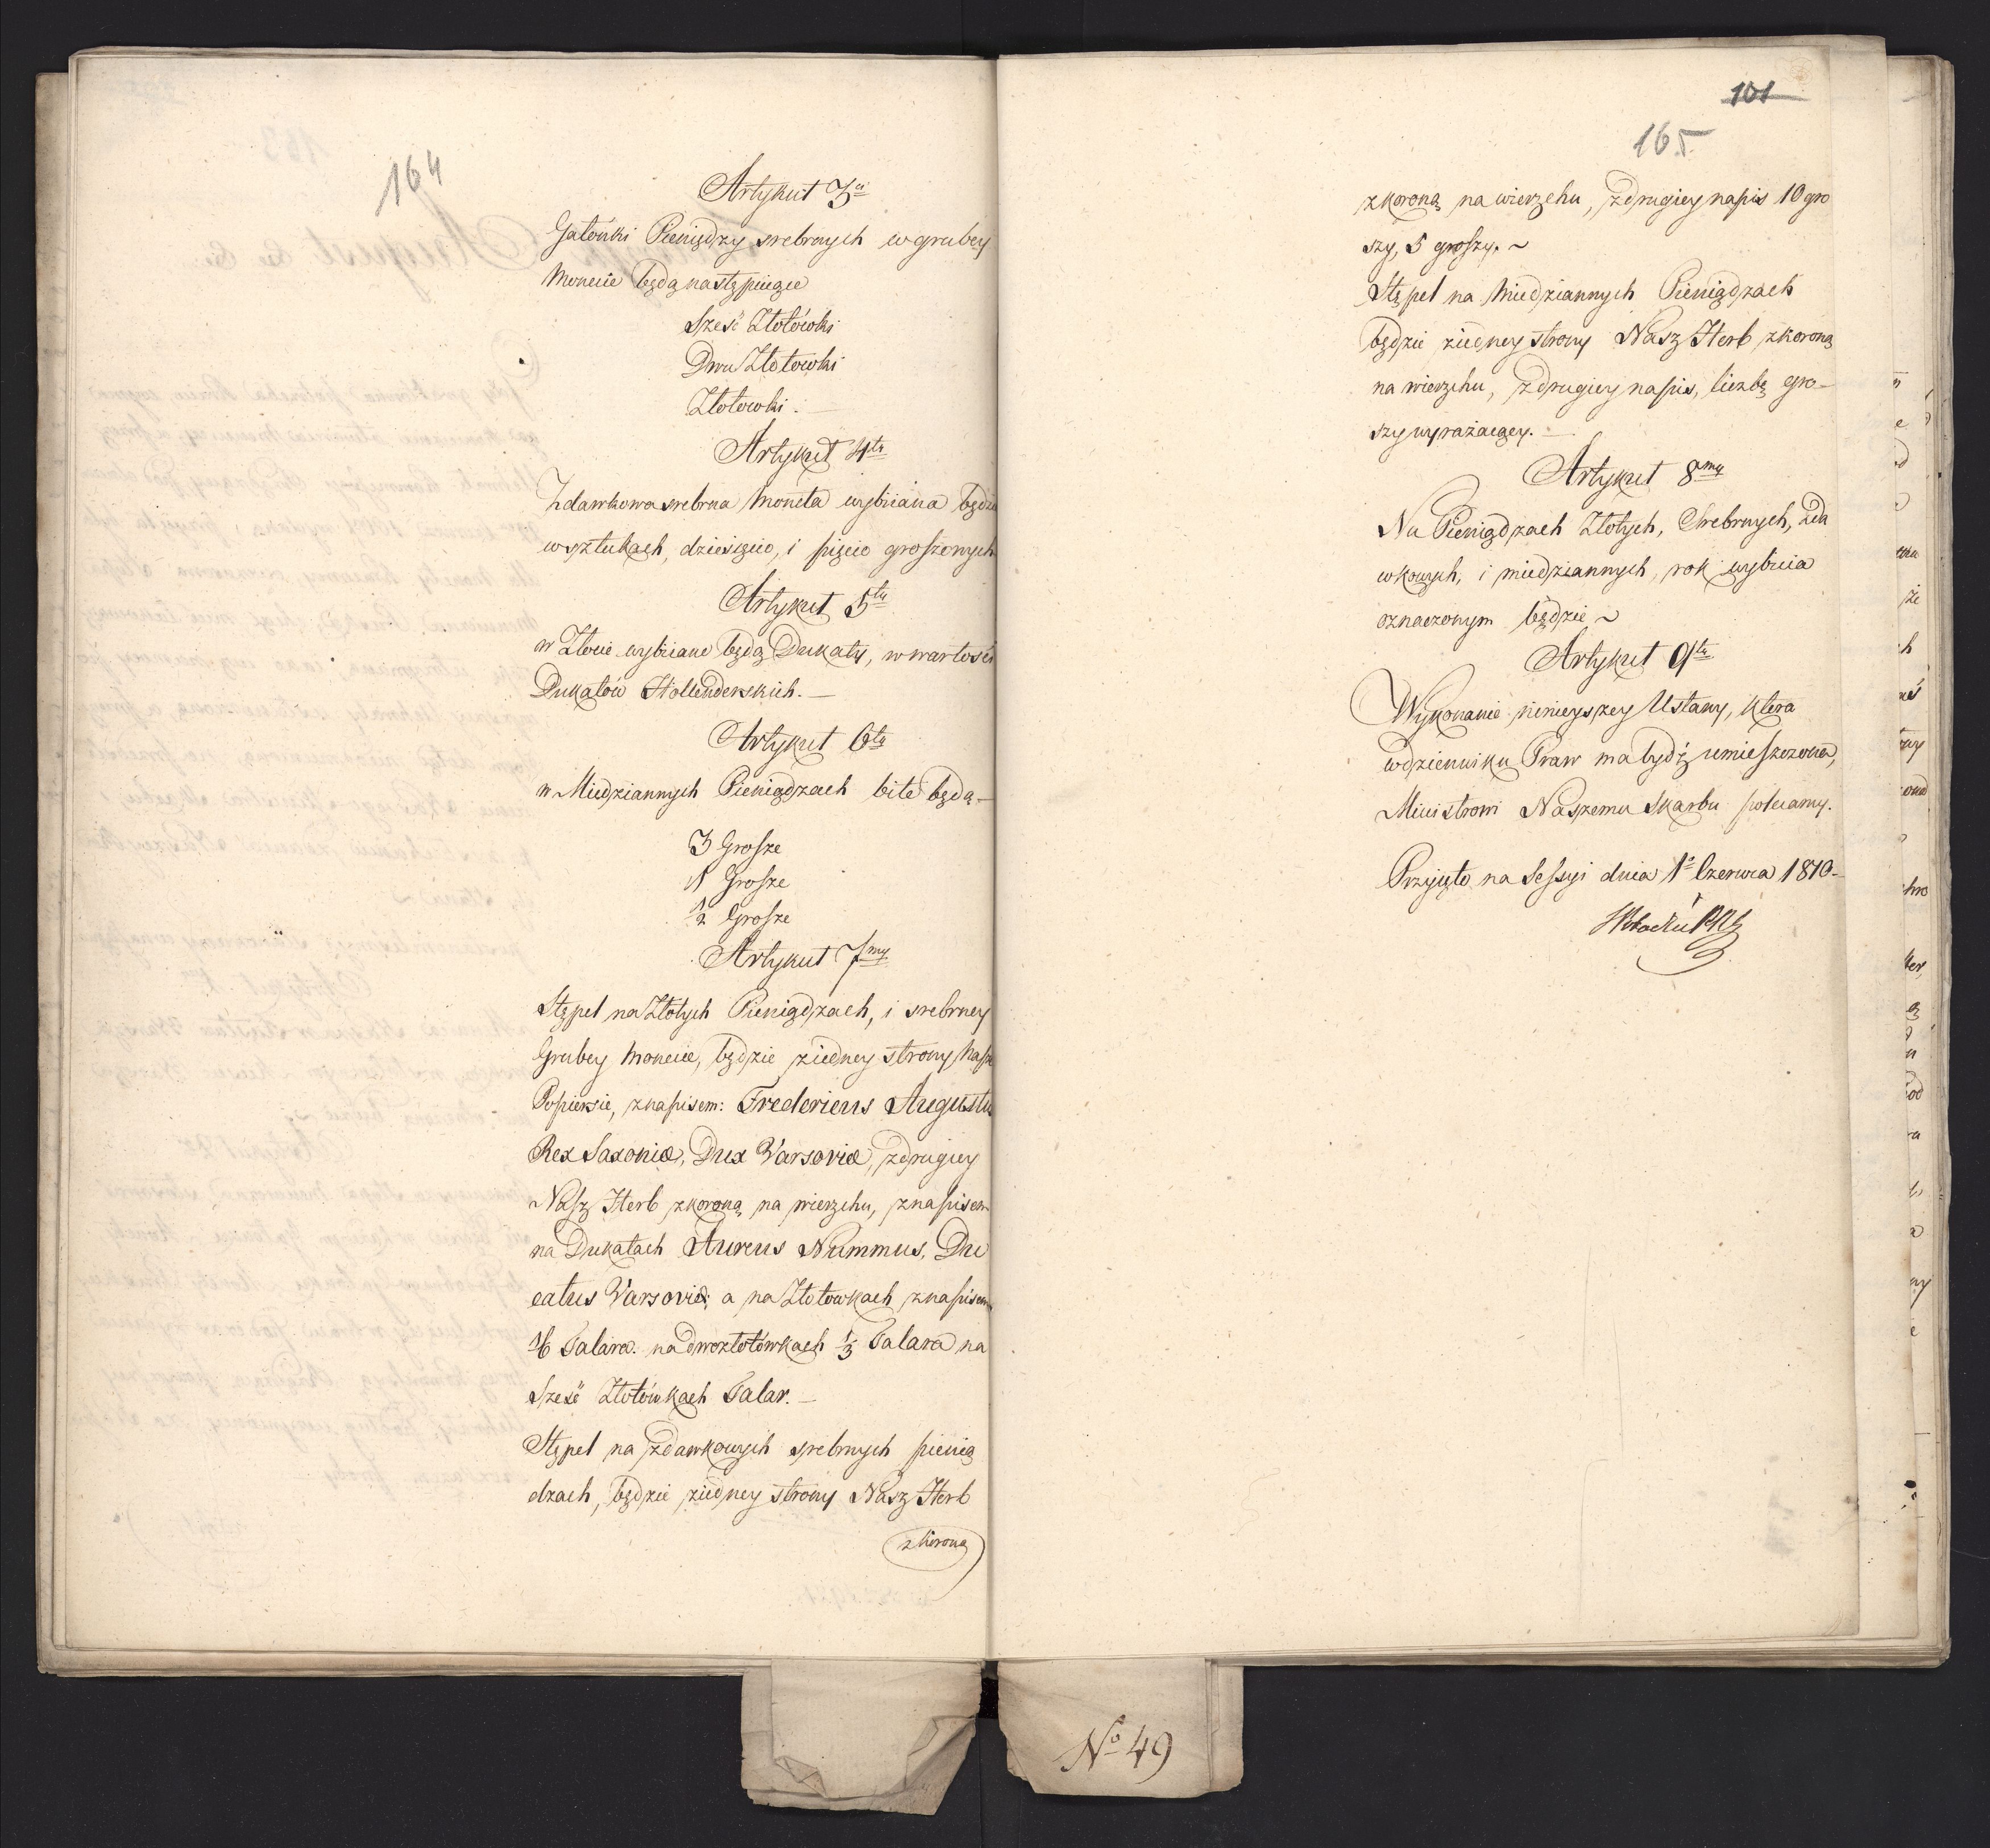 164
Artykuł 3ci
Gatunki Pieniędzy srebrnych w grubey
Monecie będą następuiące
Sześć Złotówki
Dwu Złotowki
Złotowki. —
Artykuł 4ty
Zdawkowa srebrna Moneta wybiiana będzie
w sztukach, dziesięcio, i pięcio groszowych
Artykuł 5ty
w Złocie wybiiane będą Dukaty, w wartości
Dukatów Hollenderskich. —
Artykuł 6ty
w Miedziannych Pieniądzach bite będą —
3 Grosze
1 Grosze
1/2 Grosze
Artykuł 7my
Stępel na Złotych Pieniądzach, i srebrney
Grubey Monecie, będzie ziedney strony Nasze
Popiersie, znapisem: Fredericus Augustus
Rex Saxoniæ, Dux Varsoviæ, zdrugiey
Nasz Herb zkoroną na wierzchu, znapisem
na Dukatach Aureus Nummus, Du
catus Varsoviæ; a na Złotowkach znapisem
1/6 Talara. na dwuzłotówkach 1/3 Talara na
Sześć Złotówkach Talar. —
Stępel na zdawkowych srebrnych pienią
dzach, będzie ziedney strony Nasz Herb
zkoroną
101
165
zkoroną na wierzchu, zdrugiey napis 10 gro
szy, 5 groszy. ~
Stępel na Miedziannych Pieniądzach
będzie ziedney strony Nasz Herb zkoroną
na wierzchu, zdrugiey napis, liczbę gro-
szy wyrażaiący. —
Artykuł 8my
Na Pieniądzach Złotych, Srebrnych, Zda
wkowych, i miedziannych, rok wybicia
oznaczonym będzie ~
Artykuł 9ty
Wykonanie ninieyszey Ustawy, ktora
wdzienniku Praw ma bydź umieszczona,
Ministrowi Naszemu Skarbu polecamy.
Przyięto na Sessyi dnia 1o Czerwca 1810 —
No 49